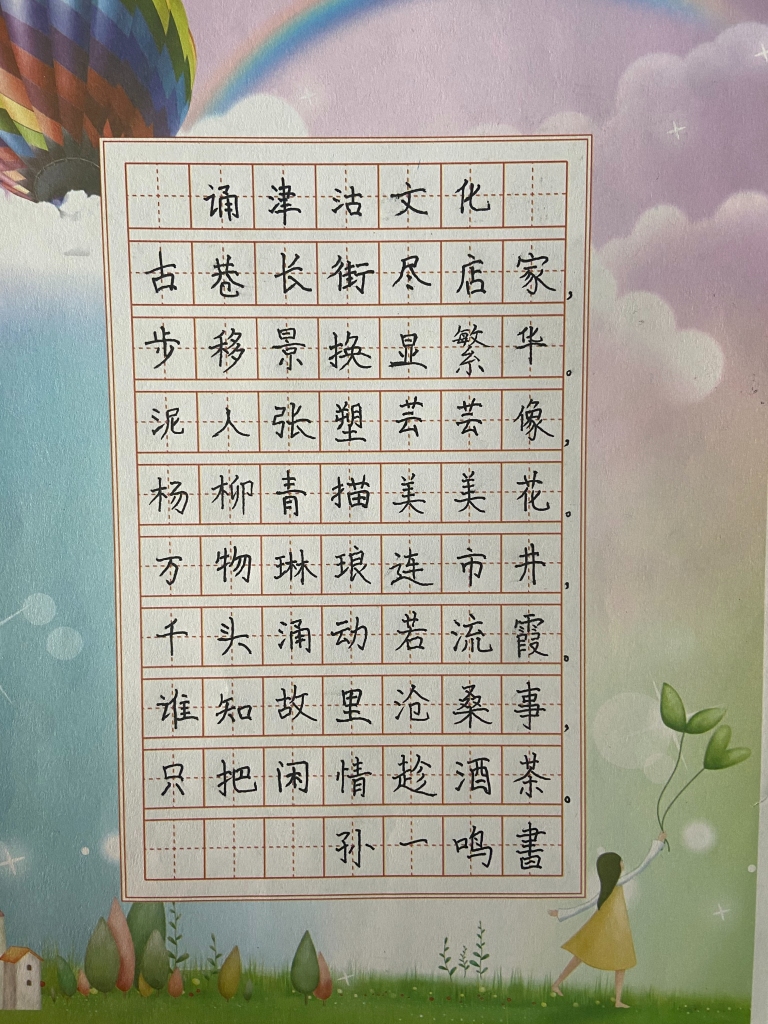 诵津沽文化
古巷长街尽店家，
步移景换显繁华。
泥人张塑芸芸像，
杨柳青描美美花。
万物琳琅连市井，
千头涌动若流霞。
谁知故里沧桑事，
只把闲情趁酒茶。
孙一鸣書